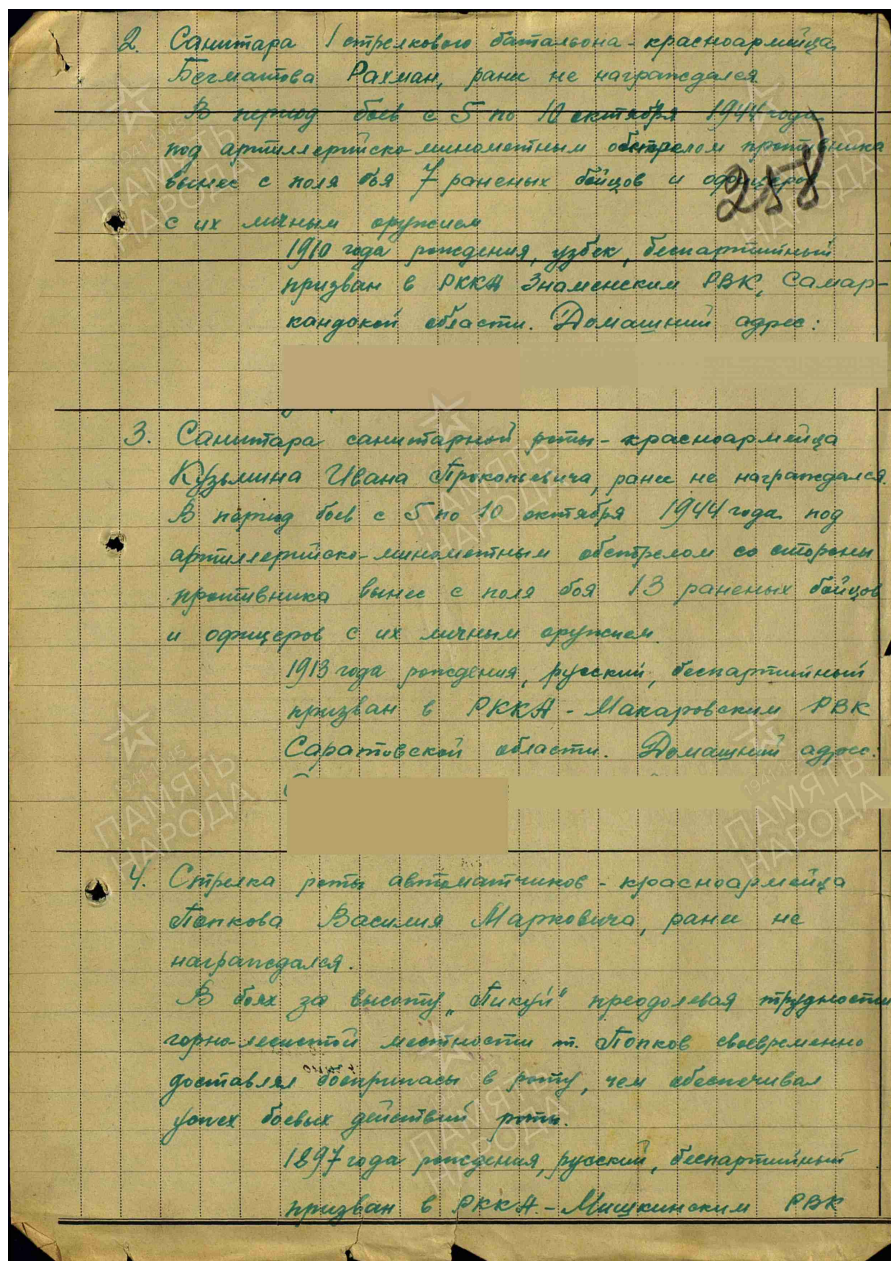 2. Санитара 1 стрелкового батальона - красноармейца
Бегматова Рахман, ранее не награждался
В период боев с 5 по 10 октября 1944 года
под артиллерийско-минометным обстрелом противника
вынес с поля боя 7 раненых бойцов и офицеров
258
с их личным оружием
1910 года рождения, узбек, беспартийный
призван в РККА Знаменским РВК, Самар-
кандской области. Домашний адрес:
3. Санитара санитарной роты - красноармейца
Кузьмина Ивана Прокопьевича, ранее не награждался.
В период боев с 5 по 10 октября 1944 года под
артиллерийско-минометным обстрелом со стороны
противника вынес с поля боя 13 раненых бойцов
и офицеров с их личным оружием.
1913 года рождения, русский, беспартийный
призван в РККА - Макаровским РВК
Саратовской области. Домашний адрес:
4. Стрелка роты автоматчиков - красноармейца
Попкова Василия Марковича, ранее не
награждался.
В боях за высоту "Пикуй" преодолевая трудности
горно-лесистой местности т. Попков своевременно
доставлял боеприпасы в роту, чем обеспечивал
успех боевых действий роты.
1897 года рождения, русский, беспартийный
призван в РККА - Мишкинским РВК
ПАМЯТЬ НАРОДА
1941-1945
ПАМЯТЬ НАРОДА